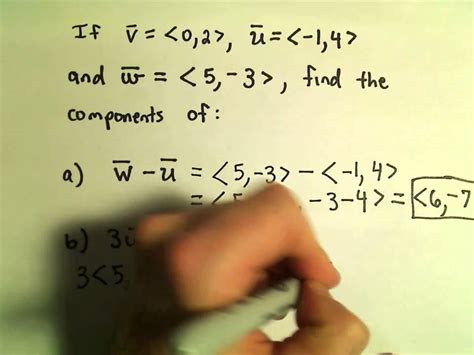 If v̅ = <0,2>, u̅ = <-1,4>
and w̅ = <5,-3>, find the
components of:
a) w̅ - u̅ = <5,-3> - <-1,4>
= <5 -3-4> = <6,-7
b) 3
3<5,